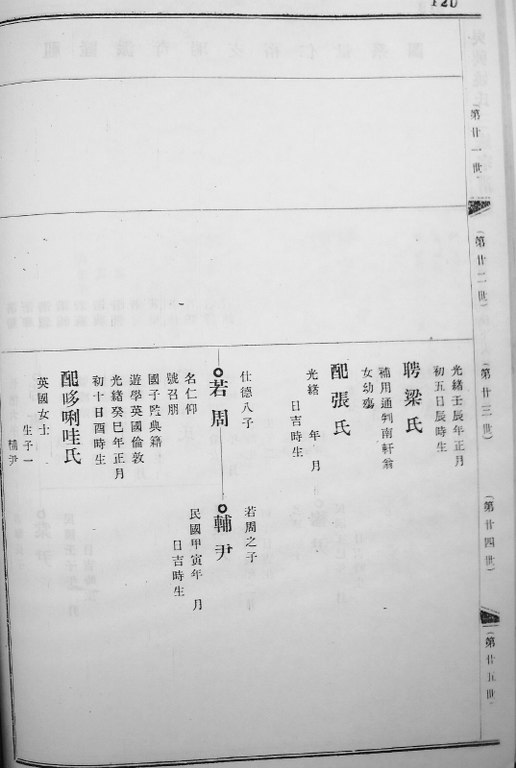 120
第廿一世
(第廿二世)
(第廿三世)
(第廿四世)
(第廿五世)
光緒壬辰年正月
初五日辰時生
聘梁氏
補用通判南軒翁
女幼殤
配張氏
光緒　年　月
日吉時生
仕德八子
若周
名仁仰
號召朋
國子監典籍
遊學英國倫敦
光緒癸巳年正月
初十日酉時生
配哆唎哇氏
英國女士
生子一
輔尹
若周之子
輔尹
民國甲寅年　月
日吉時生